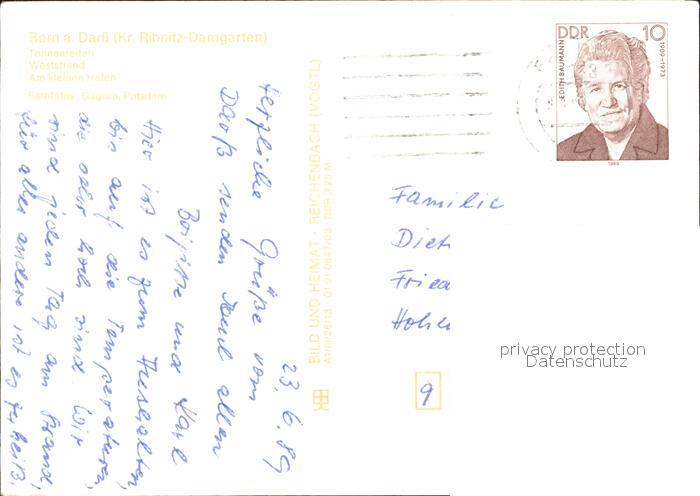 Born a. Darß (Kr. Ribnitz-Damgarten)
Tonnenreiten
Weststrand
Am kleinen Hafen
Farbfotos: Gagsch, Potsdam
BILD UND HEIMAT · REICHENBACH (VOGTL)
A1/III/26/13 01 01 0647/03 DDR 0,20 M
DDR 10
EDITH BAUMANN
1909–1973
1989
23.6.89
Herzliche Grüße vom
Darß senden Euch allen
Brigitte und Karl
Hier ist es zum Aushalten,
bis auf die Temperaturen,
die sehr hoch sind. Wir
sind jeden Tag am Strand,
für alles andere ist es zu heiß.
Familie
Diet
Fried
Hohen
9
privacy protection
Datenschutz